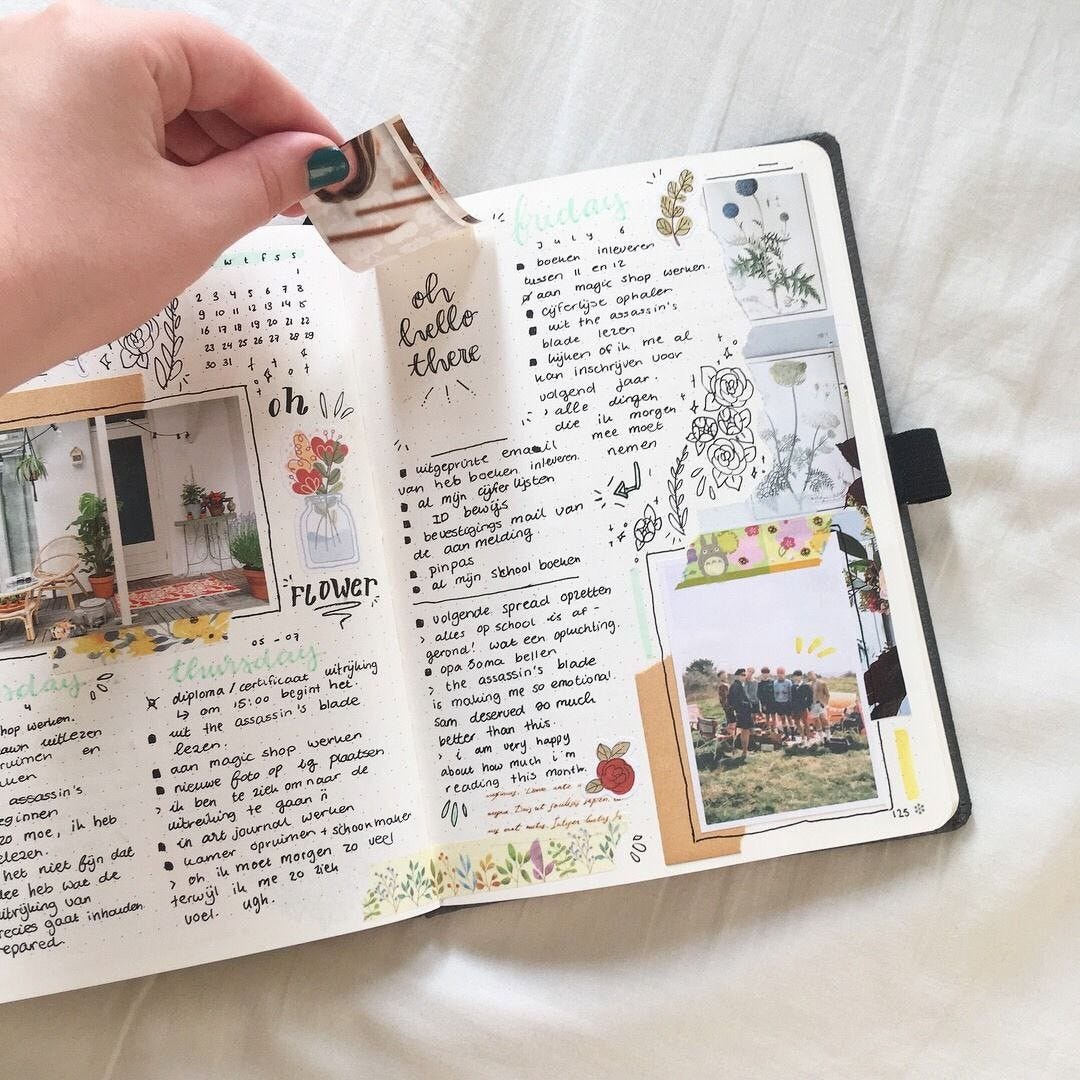 w t f s s
1
2 3 4 5 6 7 8
9 10 11 12 13 14 15
16 17 18 19 20 21 22
23 24 25 26 27 28 29
30 31
oh
FLOWER
4
hop werken.
uitlezen
ruimen en
assassin's
eginnen
zo moe, ik heb
elezen.
het niet fijn dat
dee heb wat de
uitrijking van
recies gaat inhouden
epared.
05 - 07
thursday
diploma / certificaat uitrijking
↳ om 15:00 begint het.
uit the assassin's blade
lezen.
aan magic shop werken
nieuwe foto op ig plaatsen
> ik ben te ziek om naar de
uitreiking te gaan
in art journal werken
kamer opruimen + schoonmaken
> oh ik moet morgen zo veel
terwijl ik me zo ziek
voel. ugh.
oh
hello
there
friday
july 6
boeken inleveren
tussen 11 en 12
aan magic shop werken.
cijferlijst ophalen
uit the assassin's
blade lezen
kijken of ik me al
kan inschrijven voor
volgend jaar.
> alle dingen
die ik morgen
mee moet
nemen
uitgeprinte email
van het boeken inleveren.
al mijn cijferlijsten
ID bewijs
bevestigings mail van
de aanmelding.
pinpas
al mijn school boeken
volgende spread opzetten
> alles op school is af-
gerond! wat een opluchting.
opa Soma bellen
> the assassin's blade
is making me so emotional.
Sam deserved so much
better than this.
> i am very happy
about how much i'm
reading this month.
125